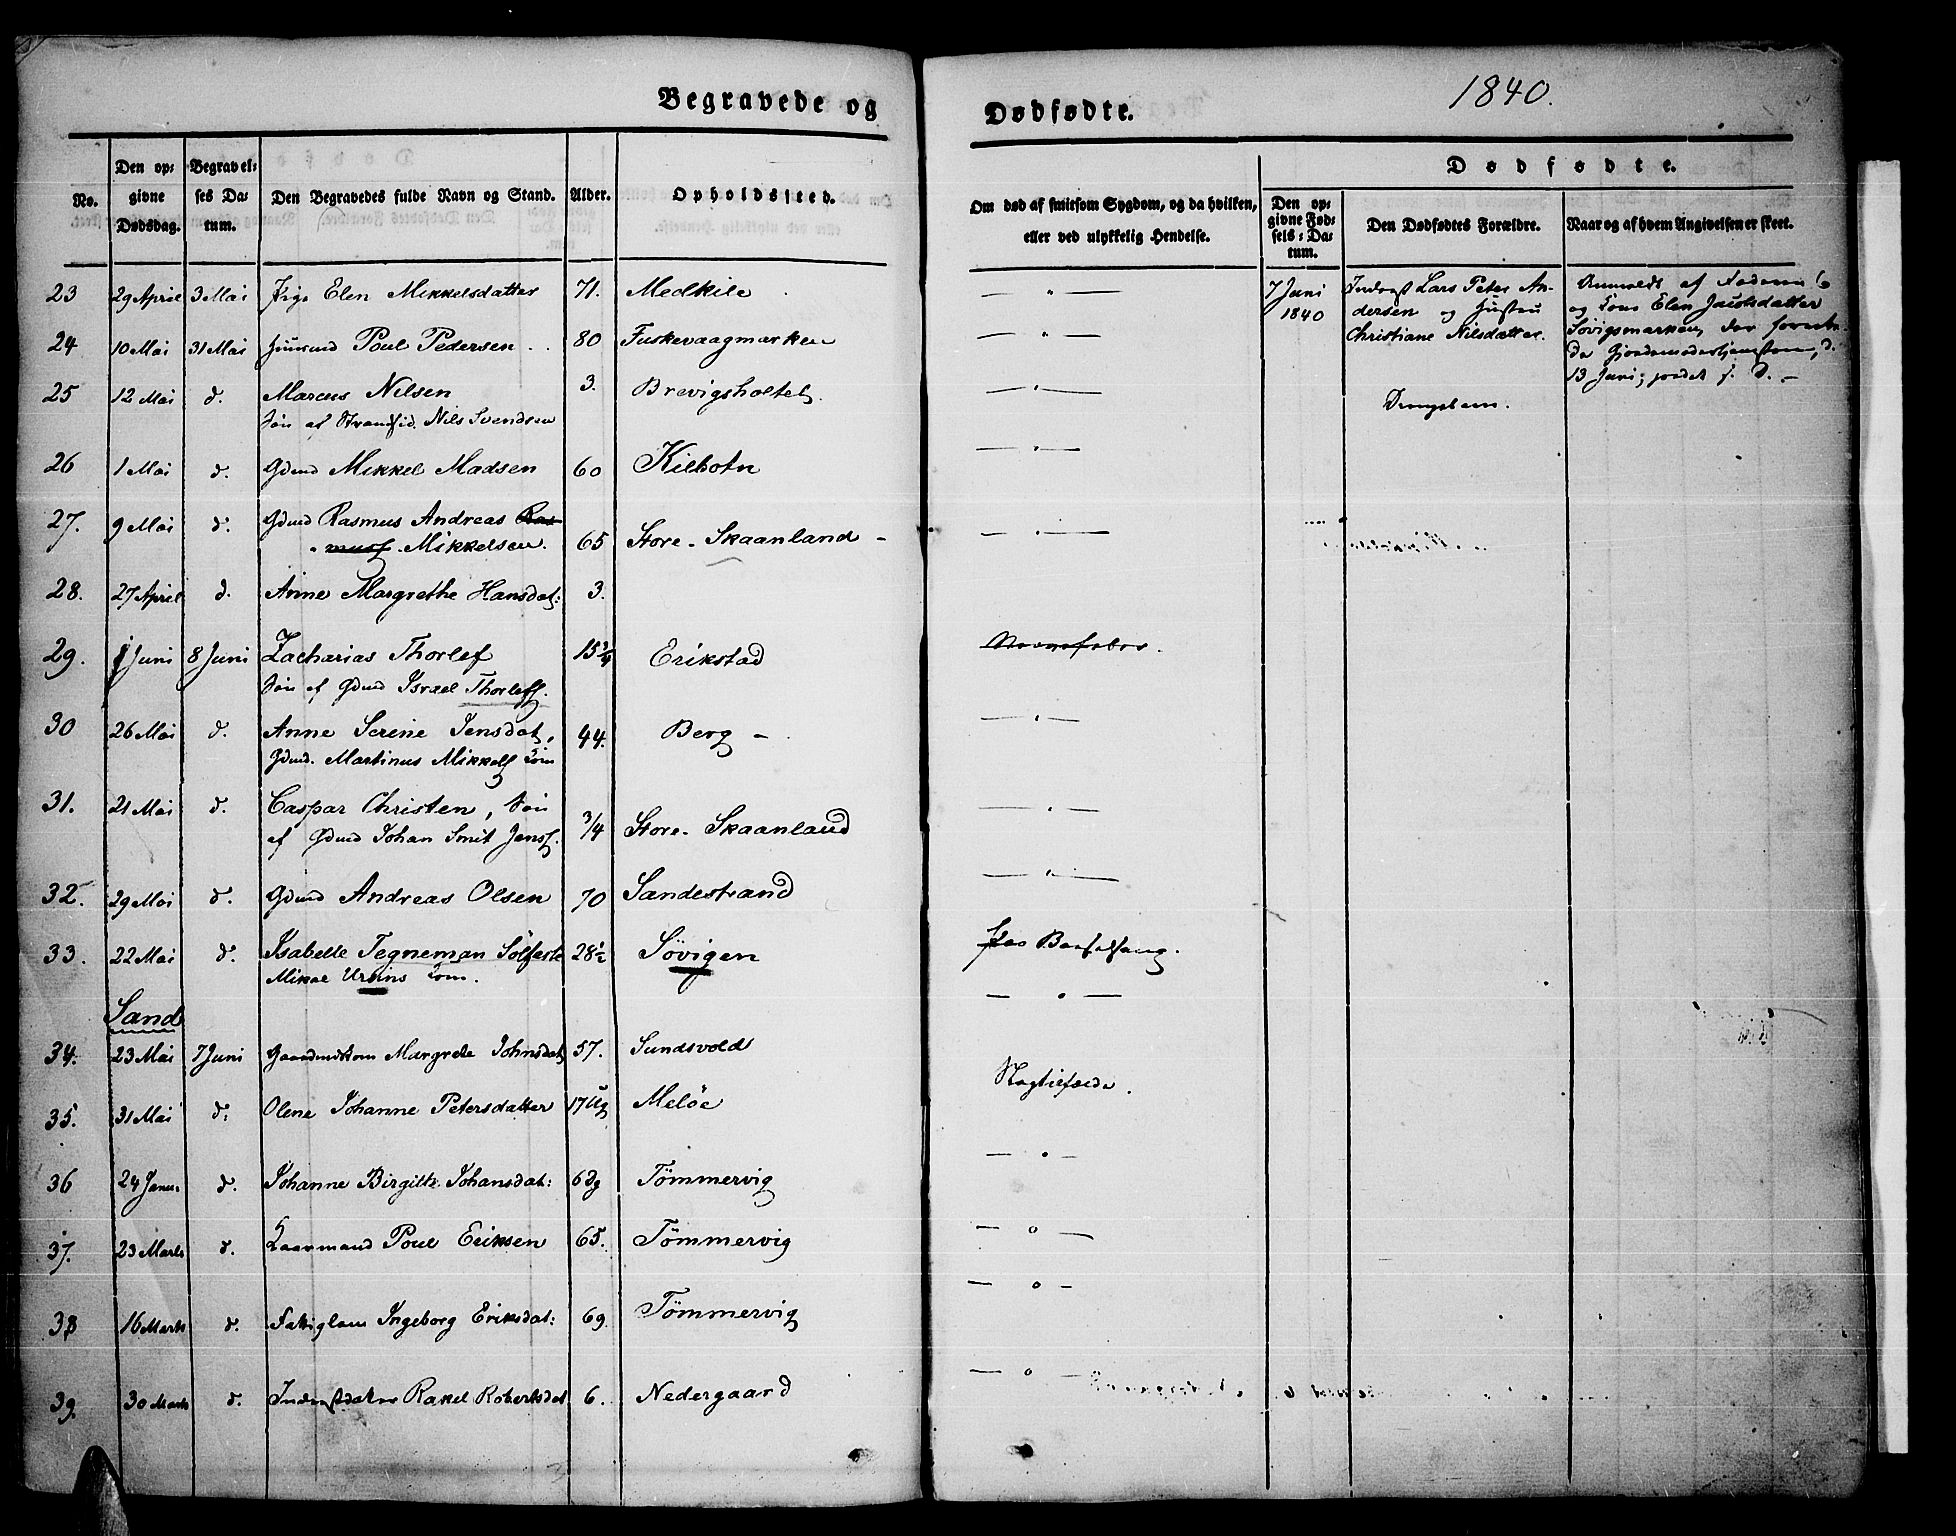 Begravede og
No.
Den op-
givne
Dødsdag.
Begravel-
ses Da-
tum.
Den Begravedes fulde Navn og Stand.
Alder.
Opholdssted.
23 29 April 3 Mai Pige Elen Mikkelsdatter 71. Medkile
24 10 Mai 31 Mai Huusmd Poul Pedersen 80 Fuskevaagmarken
25 12 Mai d. Marcus Nilsen 3. Brevigsholtet
Søn af Strandsid. Nils Svendsen
26 1 Mai d. Gdmd Mikkel Madsen 60 Kilbotn
27. 9 Mai d. Gdmd Rasmus Andreas Ras-
musf Mikkelsen. 65 Store-Skaanland
28. 27 April d. Anne Margrethe Hansdat: 3.
29. Juni 8 Juni Zacharias Thorlef 15 3/4 Erikstad
Søn af Gdmd Israel Thorlefs.
30 26 Mai d. Anne Serine Jensdat, 44. Berg
Gdmd. Martinus Mikkels Kone
31. 21 Mai d. Caspar Christen, Søn
af Gdmd Johan Smit Jenss. 3/4 Store-Skaanland
32. 29 Mai d. Gdmd Andreas Olsen 70 Sandestrand
33. 22 Mai d. Isabelle Tegneman 28½ Søvigen
Mikae Ursins Kone.
Sand
34. 23 Mai 7 Juni Gaardmdskone Margrete Johnsdat 57. Sundsvold
35. 31 Mai d: Olene Johanne Petersdatter 17 Ug Meløe
36 24 Janu: d. Johanne Birgitte Johansdat: 6 Dg Tømmervig
37. 23 Marts d. Kaarmand Poul Eriksen 65. Tømmervig
38 16 Marts d. Fattiglem Ingeborg Eriksdat: 69. Tømmervig
39. 30 Marts d. Inderstdatter Rakel Robertsdat 6. Nedergaard
1840.
Dødfødte.
Om død af smitsom Sygdom, og da hvilken,
eller ved ulykkelig Hendelse.
Dødfødte.
Den op-
givne Fød-
sels-Da-
tum.
Den Dødfødtes Forældre.
Naar og af hvem Angivelsen er skeet.
7 Juni
1840
Inderst Lars Peter An-
dersen og Hustru
Christiane Nilsdatter.
Anmeldt af Faderen
og Kone Elen Jacobsdatter
Søvigsmarken, der forrette-
de Gjordemodertjenesten, d.
13 Juni; jordet s. D.
Drengebarn.
Nervefeber.
Barselseng.